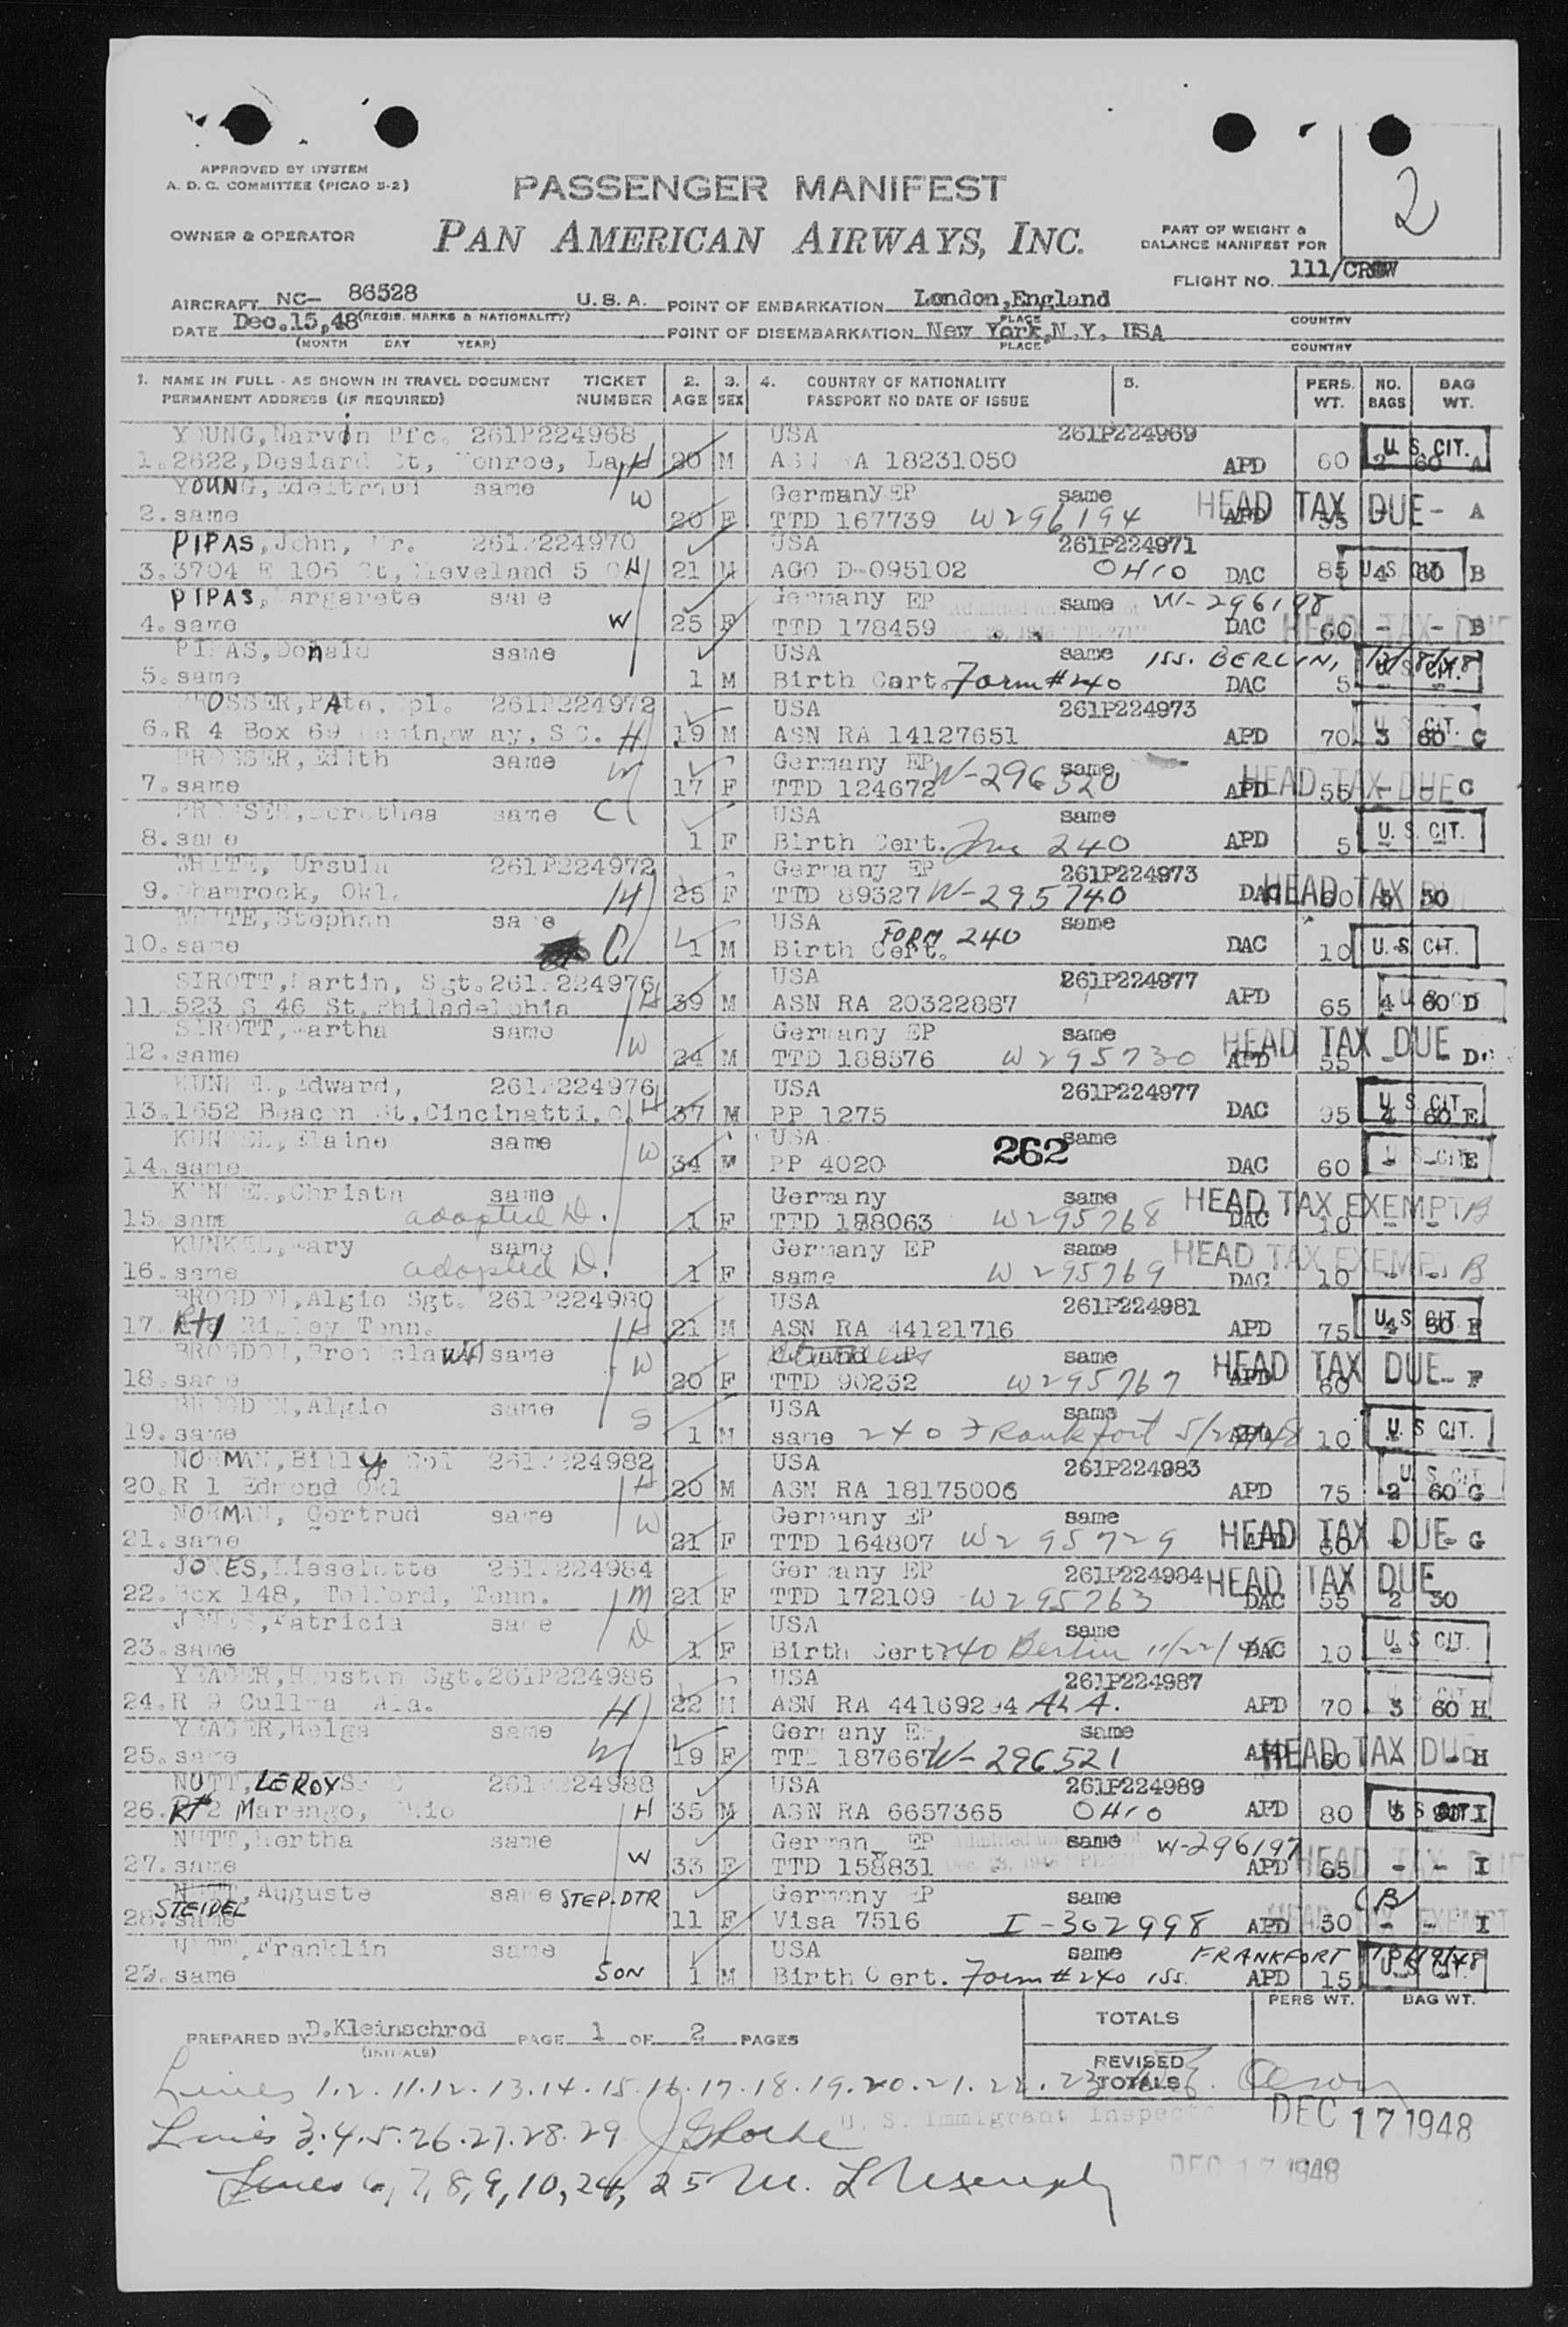 APPROVED BY SYSTEM
A. D. C. COMMITTEE (PICAO S-2)
PASSENGER MANIFEST
2
OWNER & OPERATOR
PAN AMERICAN AIRWAYS, INC.
PART OF WEIGHT &
BALANCE MANIFEST FOR
FLIGHT NO. 111/CREW
AIRCRAFT NC- 86528 U.S.A. POINT OF EMBARKATION London,England
(REGIS. MARKS & NATIONALITY) PLACE COUNTRY
DATE Dec.15,48 POINT OF DISEMBARKATION New York,N.Y. USA
(MONTH DAY YEAR) PLACE COUNTRY
1. NAME IN FULL - AS SHOWN IN TRAVEL DOCUMENT TICKET 2. 3. 4. COUNTRY OF NATIONALITY 5. PERS. NO. BAG
PERMANENT ADDRESS (IF REQUIRED) NUMBER AGE SEX PASSPORT NO DATE OF ISSUE WT. BAGS WT.
YOUNG,Marvin Pfc. 261P224968 USA 261P224969 U. S. CIT.
1. 2622,Desiard St, Monroe, La. H 20 M ASN RA 18231050 APD 60 2 60 A
YOUNG,Edeltraud same W Germany EP same HEAD TAX DUE
2. same 20 F TTD 167739 W296194 APD 55 - - A
PIPAS,John, Mr. 261P224970 USA 261P224971
3. 3704 E 106 St,Cleveland 5 H 21 M AGO D-095102 OHIO DAC 85 4 60 B U.S. CIT.
PIPAS,Margarete same Germany EP same W-296198
4. same W 25 F TTD 178459 DAC 60 - - B HEAD TAX DUE
PIPAS,Donald same USA same iss. BERLIN,
5. same 1 M Birth Cert. Form #240 DAC 5 U.S. CIT.
PROSSER,PAte, Cpl. 261P224972 USA 261P224973
6. R 4 Box 69 way, S C. H 19 M ASN RA 14127651 APD 70 3 60 C U.S. CIT.
PROSSER,Edith same W Germany EP same W-296520
7. same 17 F TTD 124672 APD 55 - - C HEAD TAX DUE
PROSSER,Dorothea same C USA same
8. same 1 F Birth Cert. 240 APD 5 - - U. S. CIT.
WHITE, Ursula 261P224972 Germany EP 261P224973
9. Shamrock, Okl. 25 F TTD 89327 W-295740 DAC 60 50 HEAD TAX DUE
WHITE,Stephan same C USA FORM 240 same
10. same 1 M Birth Cert. DAC 10 U.S. CIT.
SIROTT,Martin, Sgt. 261P224976 USA 261P224977
11. 523 S 46 St,Philadelphia H 39 M ASN RA 20322887 APD 65 4 60 D U.S. CIT.
SIROTT,Martha same W Germany EP same HEAD TAX DUE
12. same 24 M TTD 188576 W295730 APD 55 - D
KUNKEL,Edward, 261P224976 USA 261P224977 U S CIT.
13. 1652 Beacon St,Cincinatti,O. H 37 M PP 1275 DAC 95 4 60 E
KUNKEL,Elaine same W USA 262 same
14. same 34 PP 4020 DAC 60 - - E U.S. CIT.
KUNKEL,Christa same Germany same HEAD TAX EXEMPT B
15. same adopted D. 1 F TTD 188063 W295768 DAC 10 - -
KUNKEL,Mary same Germany EP same HEAD TAX EXEMPT B
16. same adopted D. 1 F same W295769 DAC 10 - -
BROGDON,Algie Sgt. 261P224980 USA 261P224981
17. Rt1 Ripley Tenn. H 21 M ASN RA 44121716 APD 75 4 50 F U.S. CIT.
BROGDON,BronislaWA same W Poland EP same HEAD TAX DUE
18. same 20 F TTD 90232 W295767 APD 60 - F
BROGDON,Algie same S USA same
19. same 1 M same 240 Frankfort APD 10 U.S CIT.
NORMAN,Billy Cpl 261P224982 USA 261P224983
20. R 1 Edmond Okl H 20 M ASN RA 18175006 APD 75 2 60 G U.S. CIT.
NORMAN, Gertrud same W Germany EP same
21. same 21 F TTD 164807 W295729 APD 60 - - G HEAD TAX DUE
JONES,Lieselotte 261P224984 Germany EP 261P224984 HEAD TAX DUE
22. Box 148, Telford, Tenn. M 21 F TTD 172109 W295763 DAC 55 2 30
JONES,Patricia same D USA same
23. same 1 F Birth Cert 240 Berlin 11/22/48 DAC 10 U. S CIT.
YEAGER,Houston Sgt. 261P224986 USA 261P224987
24. R 9 Cullma Ala. H 22 M ASN RA 44169294 ALA. APD 70 3 60 H
YEAGER,Helga same W Germany EP same
25. same 19 F TTD 187667 W-296521 APD 60 - - H HEAD TAX DUE
NUTT, LEROY 261P224988 USA 261P224989
26. Rt2 Marengo, Ohio H 35 M ASN RA 6657365 OHIO APD 80 I U.S. CIT.
NUTT,Hertha same W German EP same W-296197
27. same 33 F TTD 158831 APD 65 - - I HEAD TAX DUE
NUTT,Auguste same STEP.DTR Germany EP same (B)
STEIDEL
28. same 11 F Visa 7516 I-302998 APD 30 - - I HEAD TAX EXEMPT
NUTT,Franklin same USA same FRANKFORT
29. same SON 1 M Birth Cert. Form #240 iss. APD 15 U.S. CIT.
PREPARED BY D.Kleinschrod PAGE 1 OF 2 PAGES
(INITIALS)
TOTALS PERS WT. BAG WT.
REVISED TOTALS
Lines 1.2.11.12.13.14.15.16.17.18.19.20.21.22.23
U. S. Immigrant Inspector DEC 17 1948
Lines 3.4.5.26.27.28.29
DEC 17 1948
Lines 6,7,8,9,10,24,25